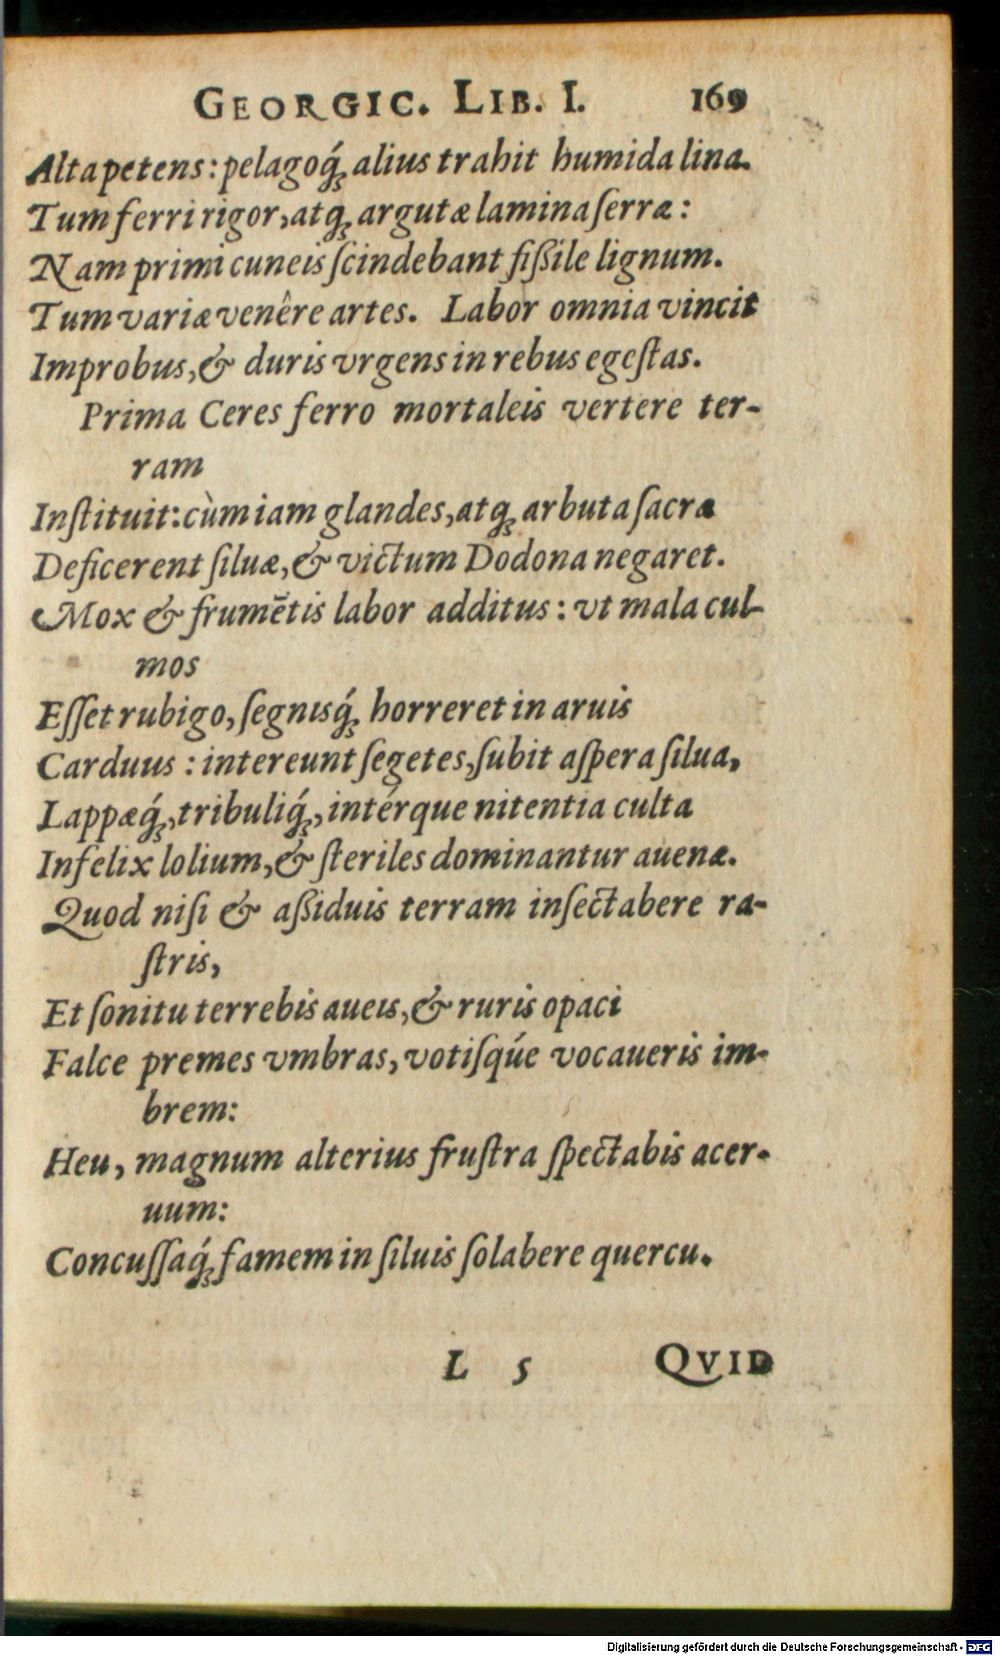 GEORGIC. LIB. I. 169
Alta petens: pelagoq́ꝫ alius trahit humida lina.
Tum ferri rigor, atqꝫ argutæ lamina ſerræ:
Nam primi cuneis ſcindebant fißile lignum.
Tum variæ venêre artes. Labor omnia vincit
Improbus, & duris vrgens in rebus egeſtas.
Prima Ceres ferro mortaleis vertere ter-
ram
Inſtituit: cùm iam glandes, atqꝫ arbuta ſacræ
Deficerent ſiluæ, & victum Dodona negaret.
Mox & frumētis labor additus: vt mala cul-
mos
Eſſet rubigo, ſegnisq́ꝫ horreret in aruis
Carduus: intereunt ſegetes, ſubit aſpera ſilua,
Lappæq́ꝫ, tribuliq́ꝫ, intérque nitentia culta
Infelix lolium, & ſteriles dominantur auenæ.
Quod niſi & aßiduis terram inſectabere ra-
ſtris,
Et ſonitu terrebis aueis, & ruris opaci
Falce premes vmbras, votiſq́ue vocaueris im-
brem:
Heu, magnum alterius fruſtra ſpectabis acer-
uum:
Concuſſaq́ꝫ famem in ſiluis ſolabere quercu.
L 5 QVID
Digitalisierung gefördert durch die Deutsche Forschungsgemeinschaft - DFG